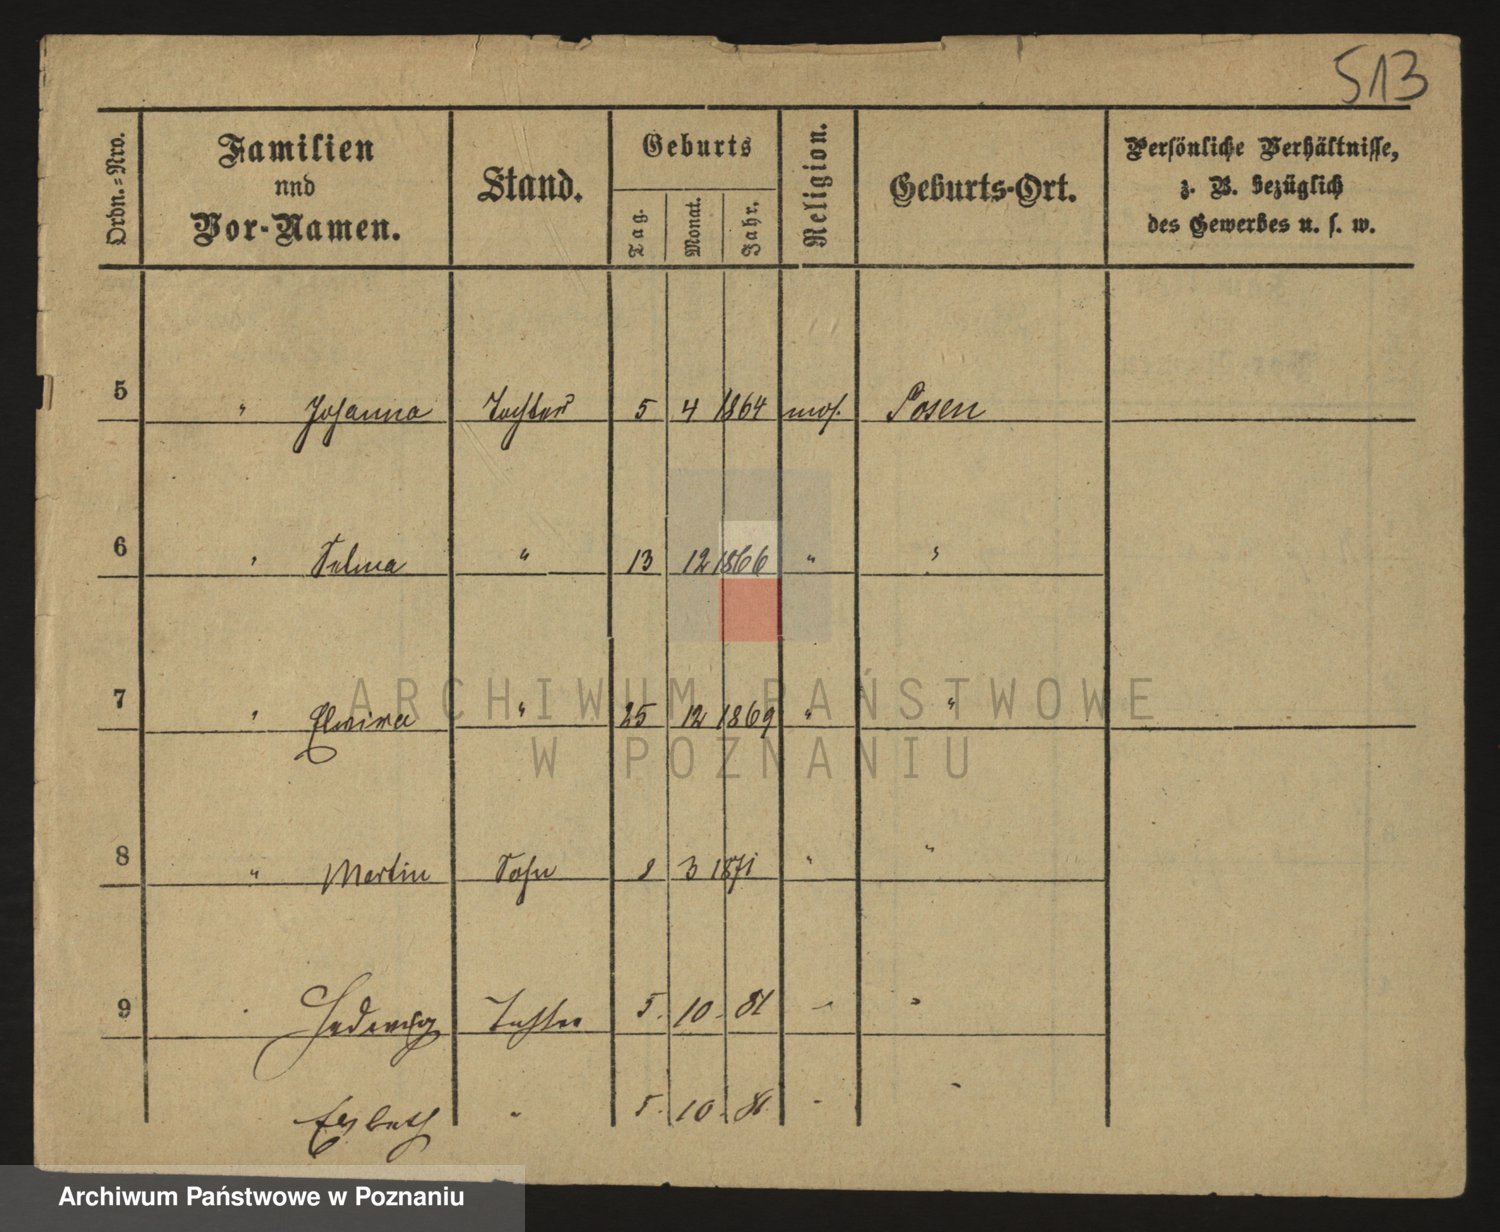 513
Ordn.-Nro.
Familien
nnd
Vor-Namen.
Stand.
Geburts
Tag.
Monat.
Jahr.
Religion.
Geburts-Ort.
Persönliche Verhältnisse,
z. B. bezüglich
des Gewerbes u. s. w.
5 " Johanna Tochter 5 4 1864 mos. Posen
6 " Selma " 13 12 1866 " "
7 " Elwira " 25 12 1869 " "
ARCHIWUM PAŃSTWOWE
W POZNANIU
8 " Martin Sohn 8 3 1871 " "
9 Hedwig Tochter 5. 10. 81 " "
" 5. 10. 81 " "
Archiwum Państwowe w Poznaniu